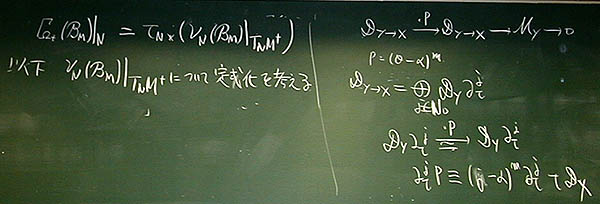 Γ_{Ω+}(B_M)|_N = τ_{N*}(ν_N(B_M)|_{T_N M^+})
以下 ν_N(B_M)|_{T_N M^+} について 定式化を考える
D_{Y→X} \xrightarrow{·P} D_{Y→X} → M_Y → 0
P = (θ-α)^m
D_{Y→X} = ⊕_{j∈N_0} D_Y ∂_t^j
D_Y ∂_t^j \xrightarrow{·P} D_Y ∂_t^j
∂_t^j P ≡ (j-α)^m ∂_t^j τ D_X